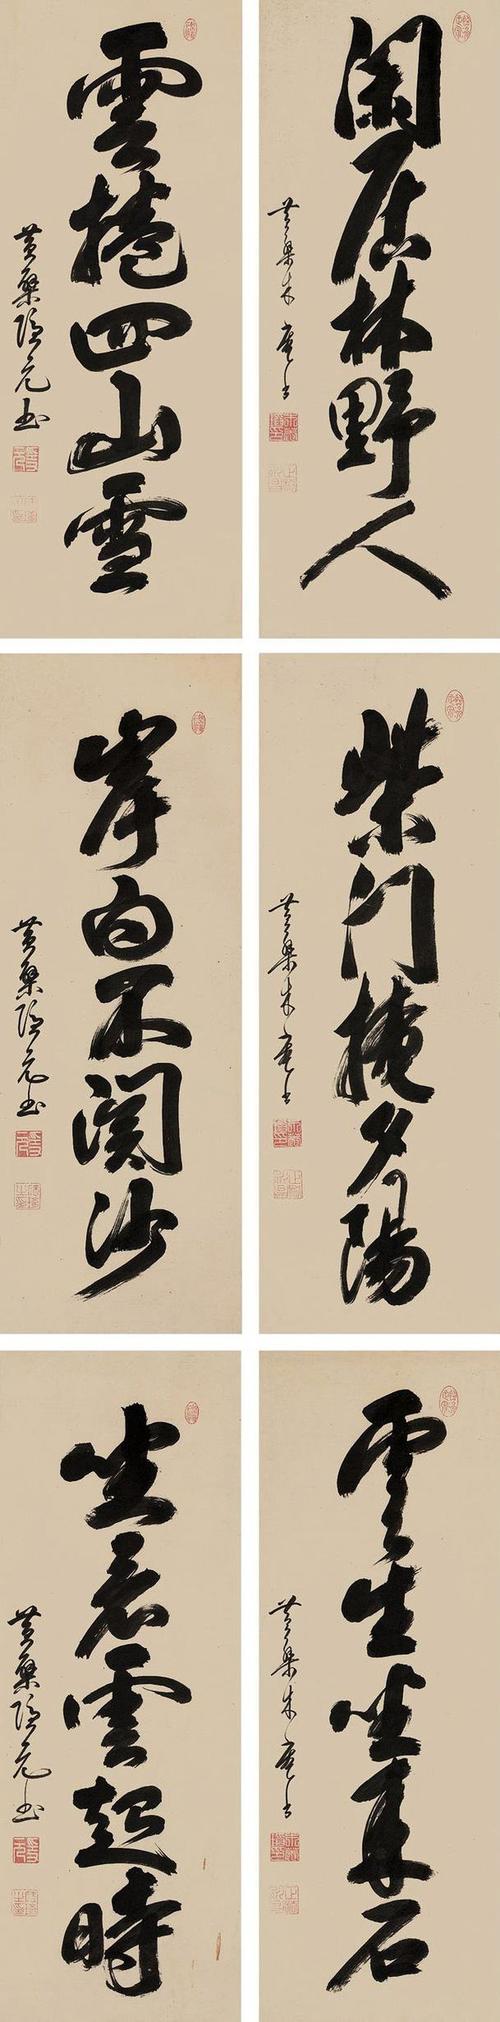 閑居林野人
黄檗木菴書
雲捲四山雪
黄檗隠元書
柴門掩夕陽
黄檗木菴書
岸白不関沙
黄檗隠元書
雲生坐来石
黄檗木菴書
坐看雲起時
黄檗隠元書